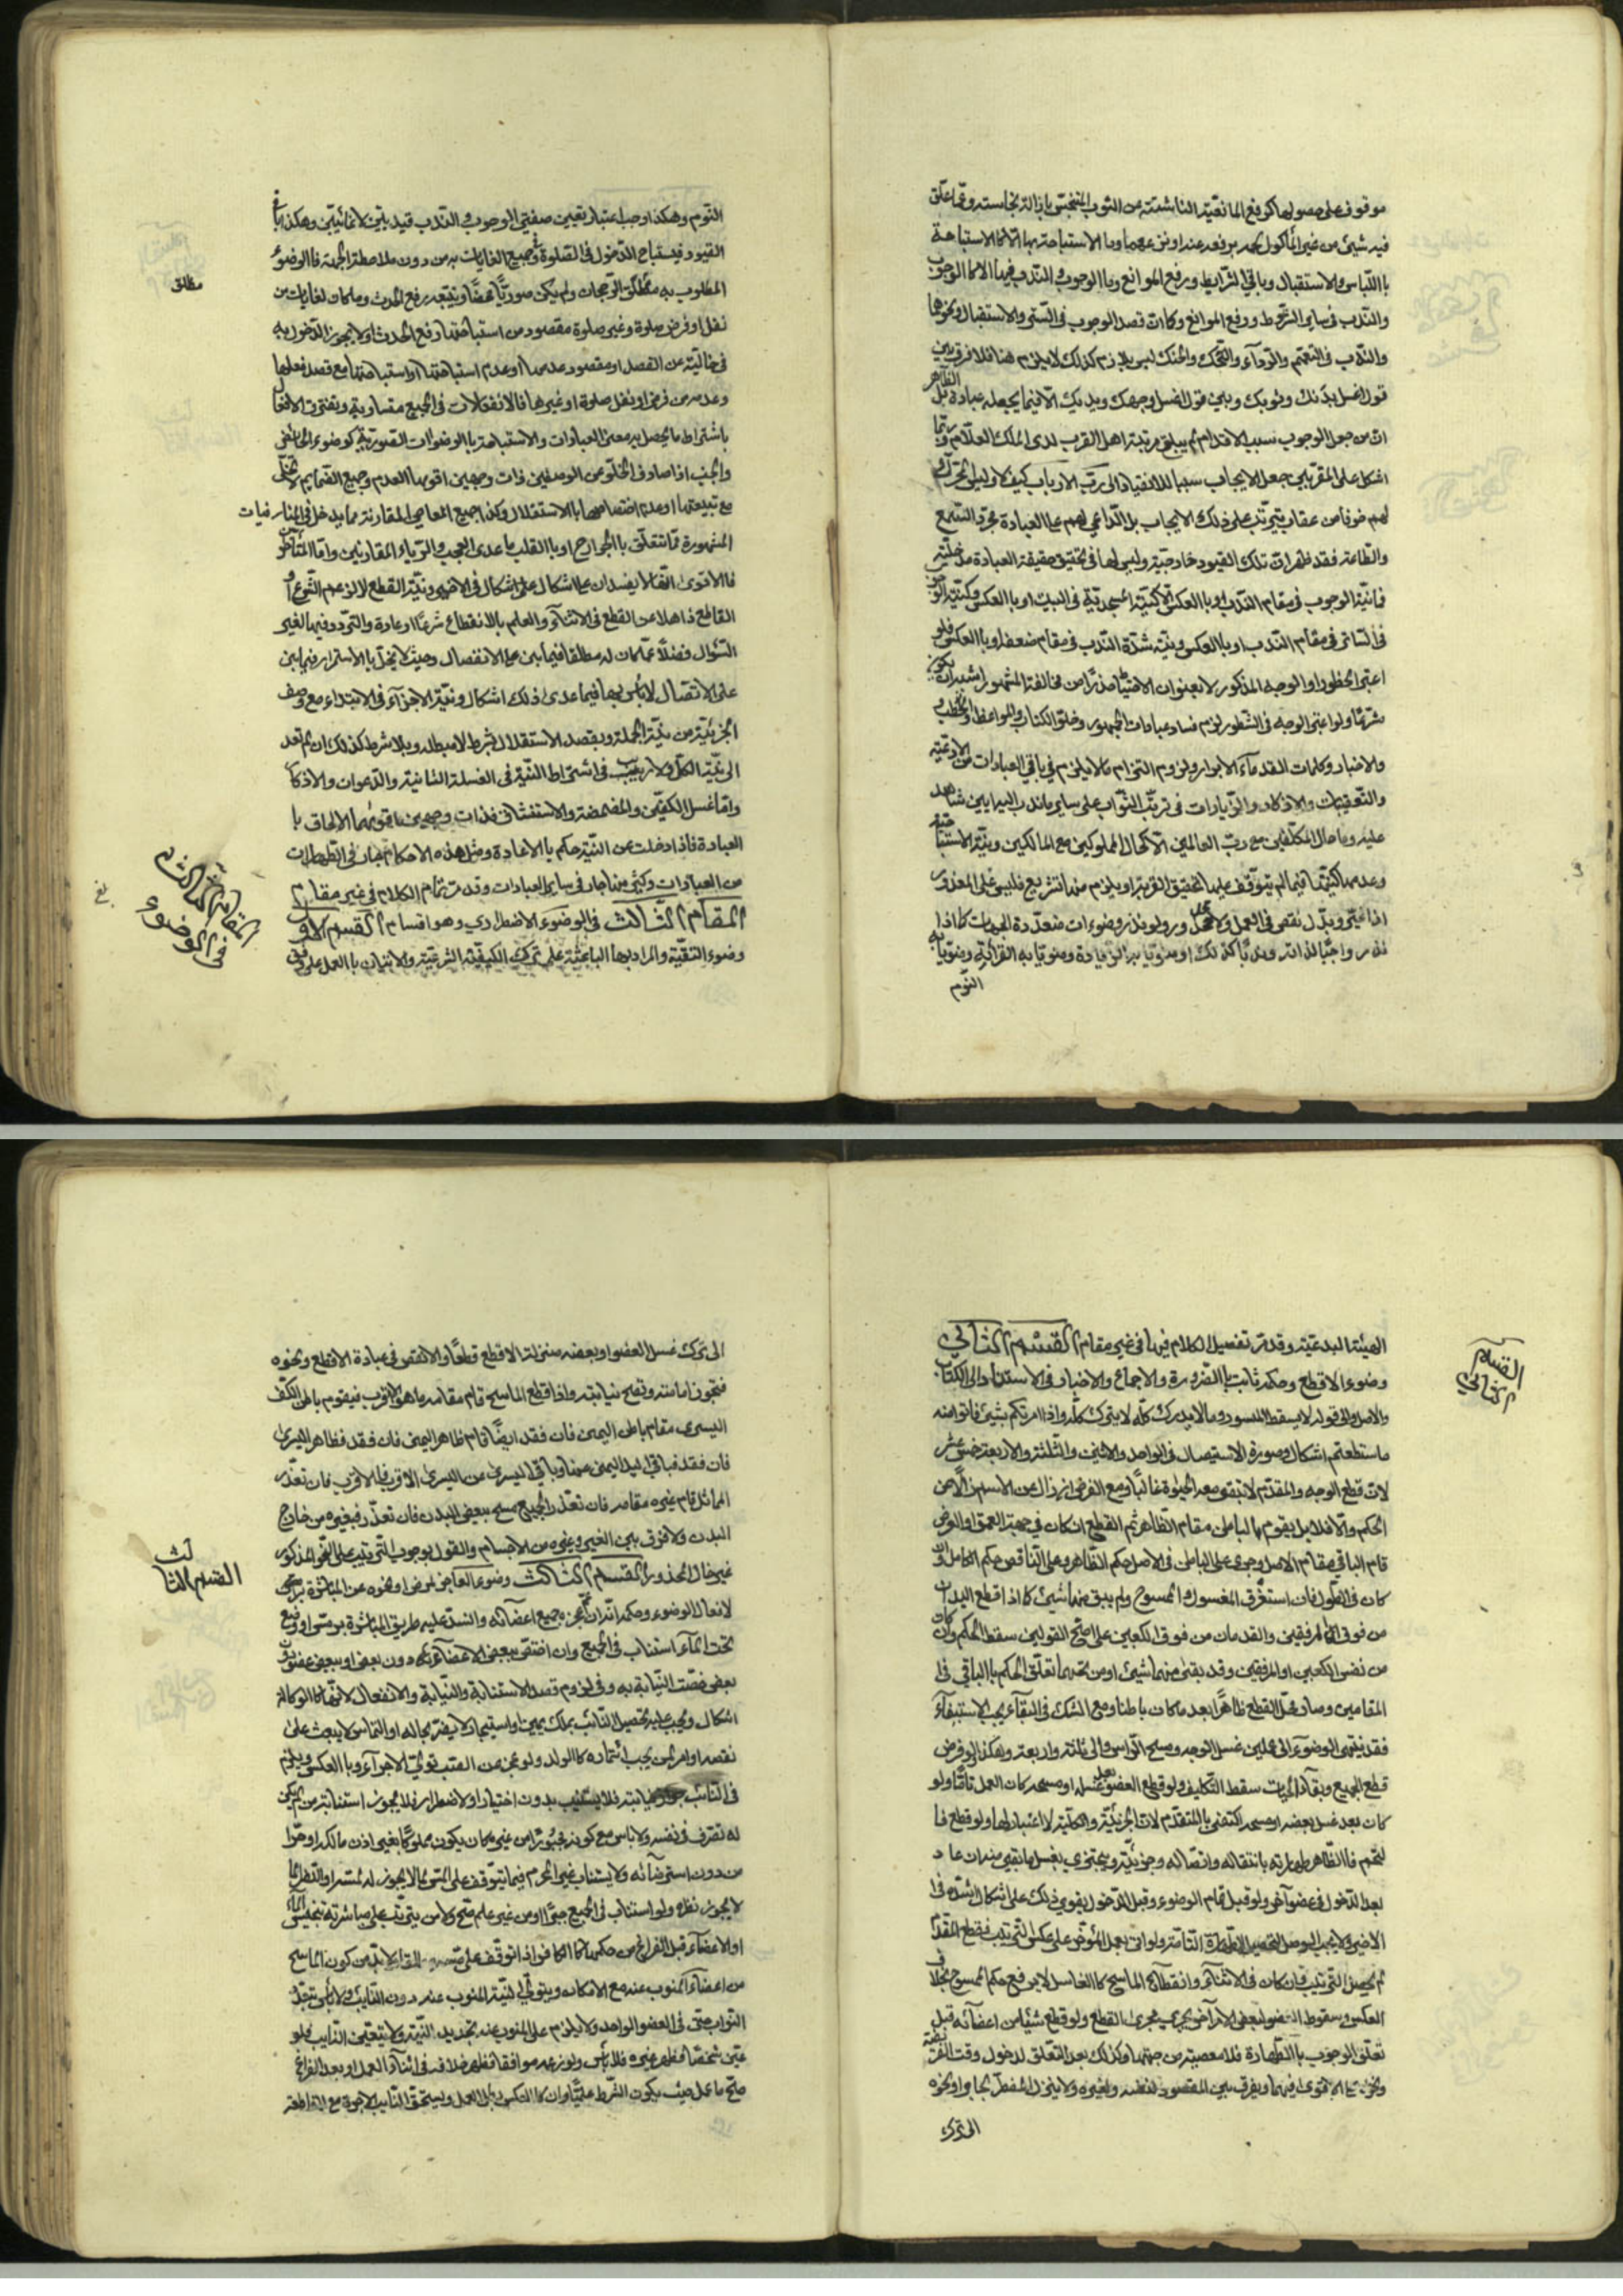 موقوف على حصولها كرفع المانعية الناشئة عن الثوب المتنجس بازالة نجاسته وقما علق
فيه شيئ من غير المأكول لحمه برفعه عنه او نزعهما وما الاستباحة بها الا كالاستباحة
باللباس والاستقبال وباقي الشرايط ورفع الموانع وما الوجوب والندب فيها الا كالوجوب
والندب في ساير الشروط ورفع الموانع وكما ان قصد الوجوب في الستر والاستقبال ونحوها
والندب في التعمم والرداء والتحنك ليس بلازم كذلك لا يلزم هنا فلا فرق بين
قول اغسل بدنك وثوبك وبين قول اغسل وجهك ويديك الا فيما يجعله عبادة بل الظاهر
ان من جعل الوجوب سببا لاقدام لم يبلغ مرتبة اهل القرب لدى الملك العلام وربما
اشكل على المقربين جعل الايجاب سببا للانقياد الى رب الارباب كيف لا وليس المحرك
لهم خوفا من عقاب يترتب على ذلك الايجاب بل الداعي لهم على العبادة مجرد السمع
والطاعة فقد ظهر ان تلك القيود خارجية وليس لها في تحقيق حقيقة العبادة مدخلية
فما نية الوجوب في مقام الندب او بالعكس الا كنية المسجدية في البيت او بالعكس وكنية
في الساتر في مقام الندب او بالعكس ونية شدة الندب في مقام ضعفه او بالعكس فلو
اعتبر الحظور او الوجه المذكور لا بعنوان الاحتياط حذرا من مخالفة المشهور اشبه ان يكون
مشرعا ولو اعتبر الوجه في الشطور لزم فساد عبادات الجمهور وخلو الكتاب والمواعظ والخطب
والاخبار وكلمات القدماء الابرار ولزوم التزام مالا يلزم في باقي العبادات من الادعية
والتعقيبات والاذكار والزيارات في ترتب الثواب على ساير ما ندب اليه ابين شاهد
عليه وما حال المكلفين مع رب العالمين الا كحال المملوكين مع المالكين ونية الاستباحة
وعدمها كنيتها فيما لم يتوقف عليها لتحقيق القربة او يلزم منها تشريع فليس على المعذور
اذا غير وبدل نقص في العمل ولا خلل ولو نذر وضوءات متعددة الجهات كما اذا
نذر واجبا لذاته ومندوبا كذلك او منويا به الزيادة ومنويا به القرائة ومنويا به
النوم
النوم وهكذا وجب اعتبار تعيين صفتي الوجوب والندب قيديتين لا غائيتين وهكذا باقي
القيود فيستباح الدخول في الصلوة وجميع الغايات به من دون ملاحظة الجهة فالوضوء
المطلوب به مطلق الرجحان ولم يكن صوريا محضا ويتبعه رفع الحدث وملحات لغايات من
مطلق
نفل او فرض صلوة وغير صلوة مقصود من استباحتها رفع الحدث او لا يجوز الدخول به
في خالية عن القصد او مقصود عدمها او عدم استباحتها او استباحتها مع قصد فعلها
وعدمه من فرض او نفل صلوة او غيرها فالانفعالات في الجميع متساوية وتفترق الافعال
باشتراط ما يحصل به معنى العبادات والاستباحة بالوضوات الصورية كوضوء الحائض
والجنب اذا صادف الخلو عن الوصفين ذات وجهين اقومها العدم وجميع الضمايم لا تخل
مع تبعيتها او عدم اختصاصها بالاستقلال وكذا جميع المعاصي المقارنة مما يدخل في المنافيات
المشهورة مما تتعلق بالجوارح او بالقلب ما عدى العجب والرياء المقارنين واما المتاخر
فالاقوى انهما لا يفسدان على اشكال على اشكال في الاخير ونية القطع لا لزعم الشرع او
القاطع ذاهلا عن القطع في الاثناء والعلم بالانقطاع شرعا او عادة والتردد فيها لغير
السؤال فضلا عما كان له مطلقا فيما بنى على الانفصال وحيث لا يخل بالاستمرار فيما بنى
على الاتصال لا باس بها فيما عدى ذلك اشكال ونية الاجزاء في الابتداء مع وصف
الجزئية من نية الجملة وبقصد الاستقلال بشرط لا مبطلة وبلا شرط كذلك ان لم تعد
الى نية الكل ولا ريب في اشتراط النية في الغسلة الثانية والدعوات والاذكار
واما غسل الكفين والمضمضة والاستنشاق فذات وجهين اقويهما الالحاق با
العبادة فاذا دخلت عن النية حكم بالاعادة ومثل هذه الاحكام جار في الطهارات
من العبادات وكثير منها جار في ساير العبادات وقد مر تمام الكلام في غير مقام
المقام الثالث في الوضوء الاضطراري وهو اقسام القسم الاول
المقام الثالث
في الوضوء
وضوء التقية والمراد بها الباعثة على ترك الكيفية الشرعية والاتيان بالعمل على وفق
الهيئة البدعية وقد مر تفصيل الكلام فيها في غير مقام القسم الثاني
القسم
الثاني
وضوء الاقطع وحكمه ثابت بالضرورة والاجماع والاخبار وفي الاستناد الى الكتاب
والاصل والى قوله لا يسقط الميسور وما لا يدرك كله لا يترك كله واذا امرتكم بشيئ فاتوا منه
ما استطعتم اشكال وصورة الاستيصال في الواحد والاثنين والثلثة والاربعة خمس عشر
لان قطع الوجه والمقدم لا تبقى معه الحيوة غالبا ومع الفرض ان زال عن الاسم زال عن
الحكم والا فلا بل يقوم الباطن مقام الظاهر ثم القطع ان كان في جهة العمق او العرض
قام الباقي مقام الاصل وجرى على الباطن في الاصل حكم الظاهر وعلى الناقص حكم الكامل وان
كان في الطول فان استغرق المغسول والممسوح ولم يبق منها شيئ كما اذا قطع اليدان
من فوق المرفقين والقدمان من فوق الكعبين على اصح القولين سقط الحكم وان كان
من نفس الكعبين او المرفقين وقد بقى منهما شيئ او من تحتهما تعلق الحكم بالباقي في
المقامين وصار محل القطع ظاهرا بعد ما كان باطنا ومع الشك في البقاء يجب الاستبقاء
فقد ينتهى الوضوء الى عملين غسل الوجه ومسح الراس والى ثلثة واربعة وهكذا لو فرض
قطع الجميع وبقاء الحيات سقط التكليف ولو قطع العضو بعد غسله او مسحه كان العمل تاما ولو
كان بعد غسل بعضه او مسحه اكتفى بالمتقدم لان الجزئية والكلية لا اعتبار لها ولو قطع فا
لتحم فالظاهر طهارته بانتقاله واتصاله وجزئيته ويجتزي بغسل ما بقى منه ان عاد
بعد الدخول في عضو آخر ولو قبل تمام الوضوء وقبل الدخول يقوى ذلك على اشكال اشده في
الاخير ولا يجب الوصل لتحصيل الطهارة التامة ولو اتى بعمل المؤخر على عكس الترتيب فقطع المقدم
لم يحصل الترتيب وان كان في الاثناء وانقطاع الماسح كالغاسل لا يرفع حكم الممسوح بخلاف
العكس وسقوط العضو لبعض الامراض يجري مجرى القطع ولو قطع شيئا من اعضائه قبل
تعلق الوجوب بالطهارة فلا معصية من جهتها وكذلك بعد التعلق لدخول وقت الفريضة
ونحوه على الاقوى فيهما ويفرق بين المقصود لنفسه ولغيره ولا ينزل المضطر بجار ونحوه
الى ترك
الى ترك غسل العضو او بعضه منزلة الاقطع قطعا والانقص في عبادة الاقطع ونحوه
فتجوز امامته وتصح نيابته واذا قطع الماسح قام مقامه ما هو الاقرب فيقوم باطن الكف
اليسرى مقام باطن اليمين فان فقد ايضا قام ظاهر اليمنى فان فقد فظاهر اليسرى
فان فقد فباقي اليد اليمنى عنها وباقي اليسرى عن اليسرى الاقرب فالاقرب فان تعذر
المماثل قام غيره مقامه فان تعذر الجميع مسح ببعض البدن فان تعذر فبغيره من خارج
البدن ولا فرق بين الغير وغيره من الاجسام والقول بوجوب الترتيب على النحو المذكور
غير خال المحذور القسم الثالث وضوء العاجز لمرض او نحوه عن المباشرة
القسم الثالث
لافعال الوضوء وحكمه انه ان عجزه جميع اعضائه وانسد عليه طريق المباشرة برمس او وضع
تحت الماء استناب في الجميع وان اختص ببعض الاعضاء دون بعض او ببعض عضو دون
بعض خصت النيابة به وفي لزوم قصد الاستنابة والنيابة والانفعال لانها كالوكالة
اشكال ويجب عليه تحصيل النائب بملك يمين او استيجار لا يضر بحاله او التماس لا يبعث على
نقصه او امر لمن يجب ائتماره كالولد ولو عجز عن الصب تولى الاجراء وبالعكس ويلزم
في النائب نيابته فلا يستنيب بدون اختيار او لاضطرار فلا يجوز استنابة من لم يكن
له تصرف في نفسه ولا باس مع كونه مجبورا من غير مكان يكون مملوكا بغير اذن مالكه او حرا
من دون استرضائه ولا يستناب غير المحرم فيما يتوقف على المس لما لا يجوز له لمسه او النظر لما
لا يجوز نظره ولو استناب في الجميع جبرا او من غير علم صح ولا من يترتب على مباشرته تنجيس الماء
او الاعضاء قبل الفراغ من حكمها كالكافر اذا توقف على لابد من كون الماسح
من اعضاء المنوب عنه مع الامكان ويتولى النية المنوب عنه دون النايب ولا باس بتعدد
النواب حتى في العضو الواحد ولا يلزم على المنوب عنه تجديد النية ولا يتعين النايب فلو
عين شخصا فظهر غيره فلا باس ولو زعمه موافقا فظهر خلافه في اثناء العمل او بعد الفراغ
صح ما عمل حيث يكون الشرط علميا وان كان بالعكس بطل العمل ويستحق النايب الاجرة مع المقاطعة